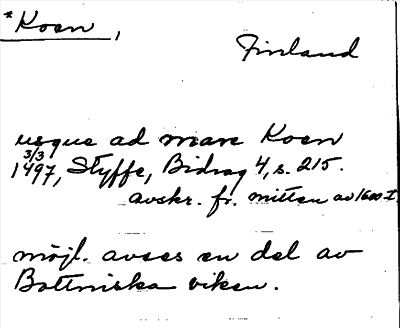 *Koen,
Finland
usque ad mare Koen
3/3
1497, Styffe, Bidrag 4, s. 215.
avskr. fr. mitten av 1600-t.
möjl. avses en del av
Bottniska viken.